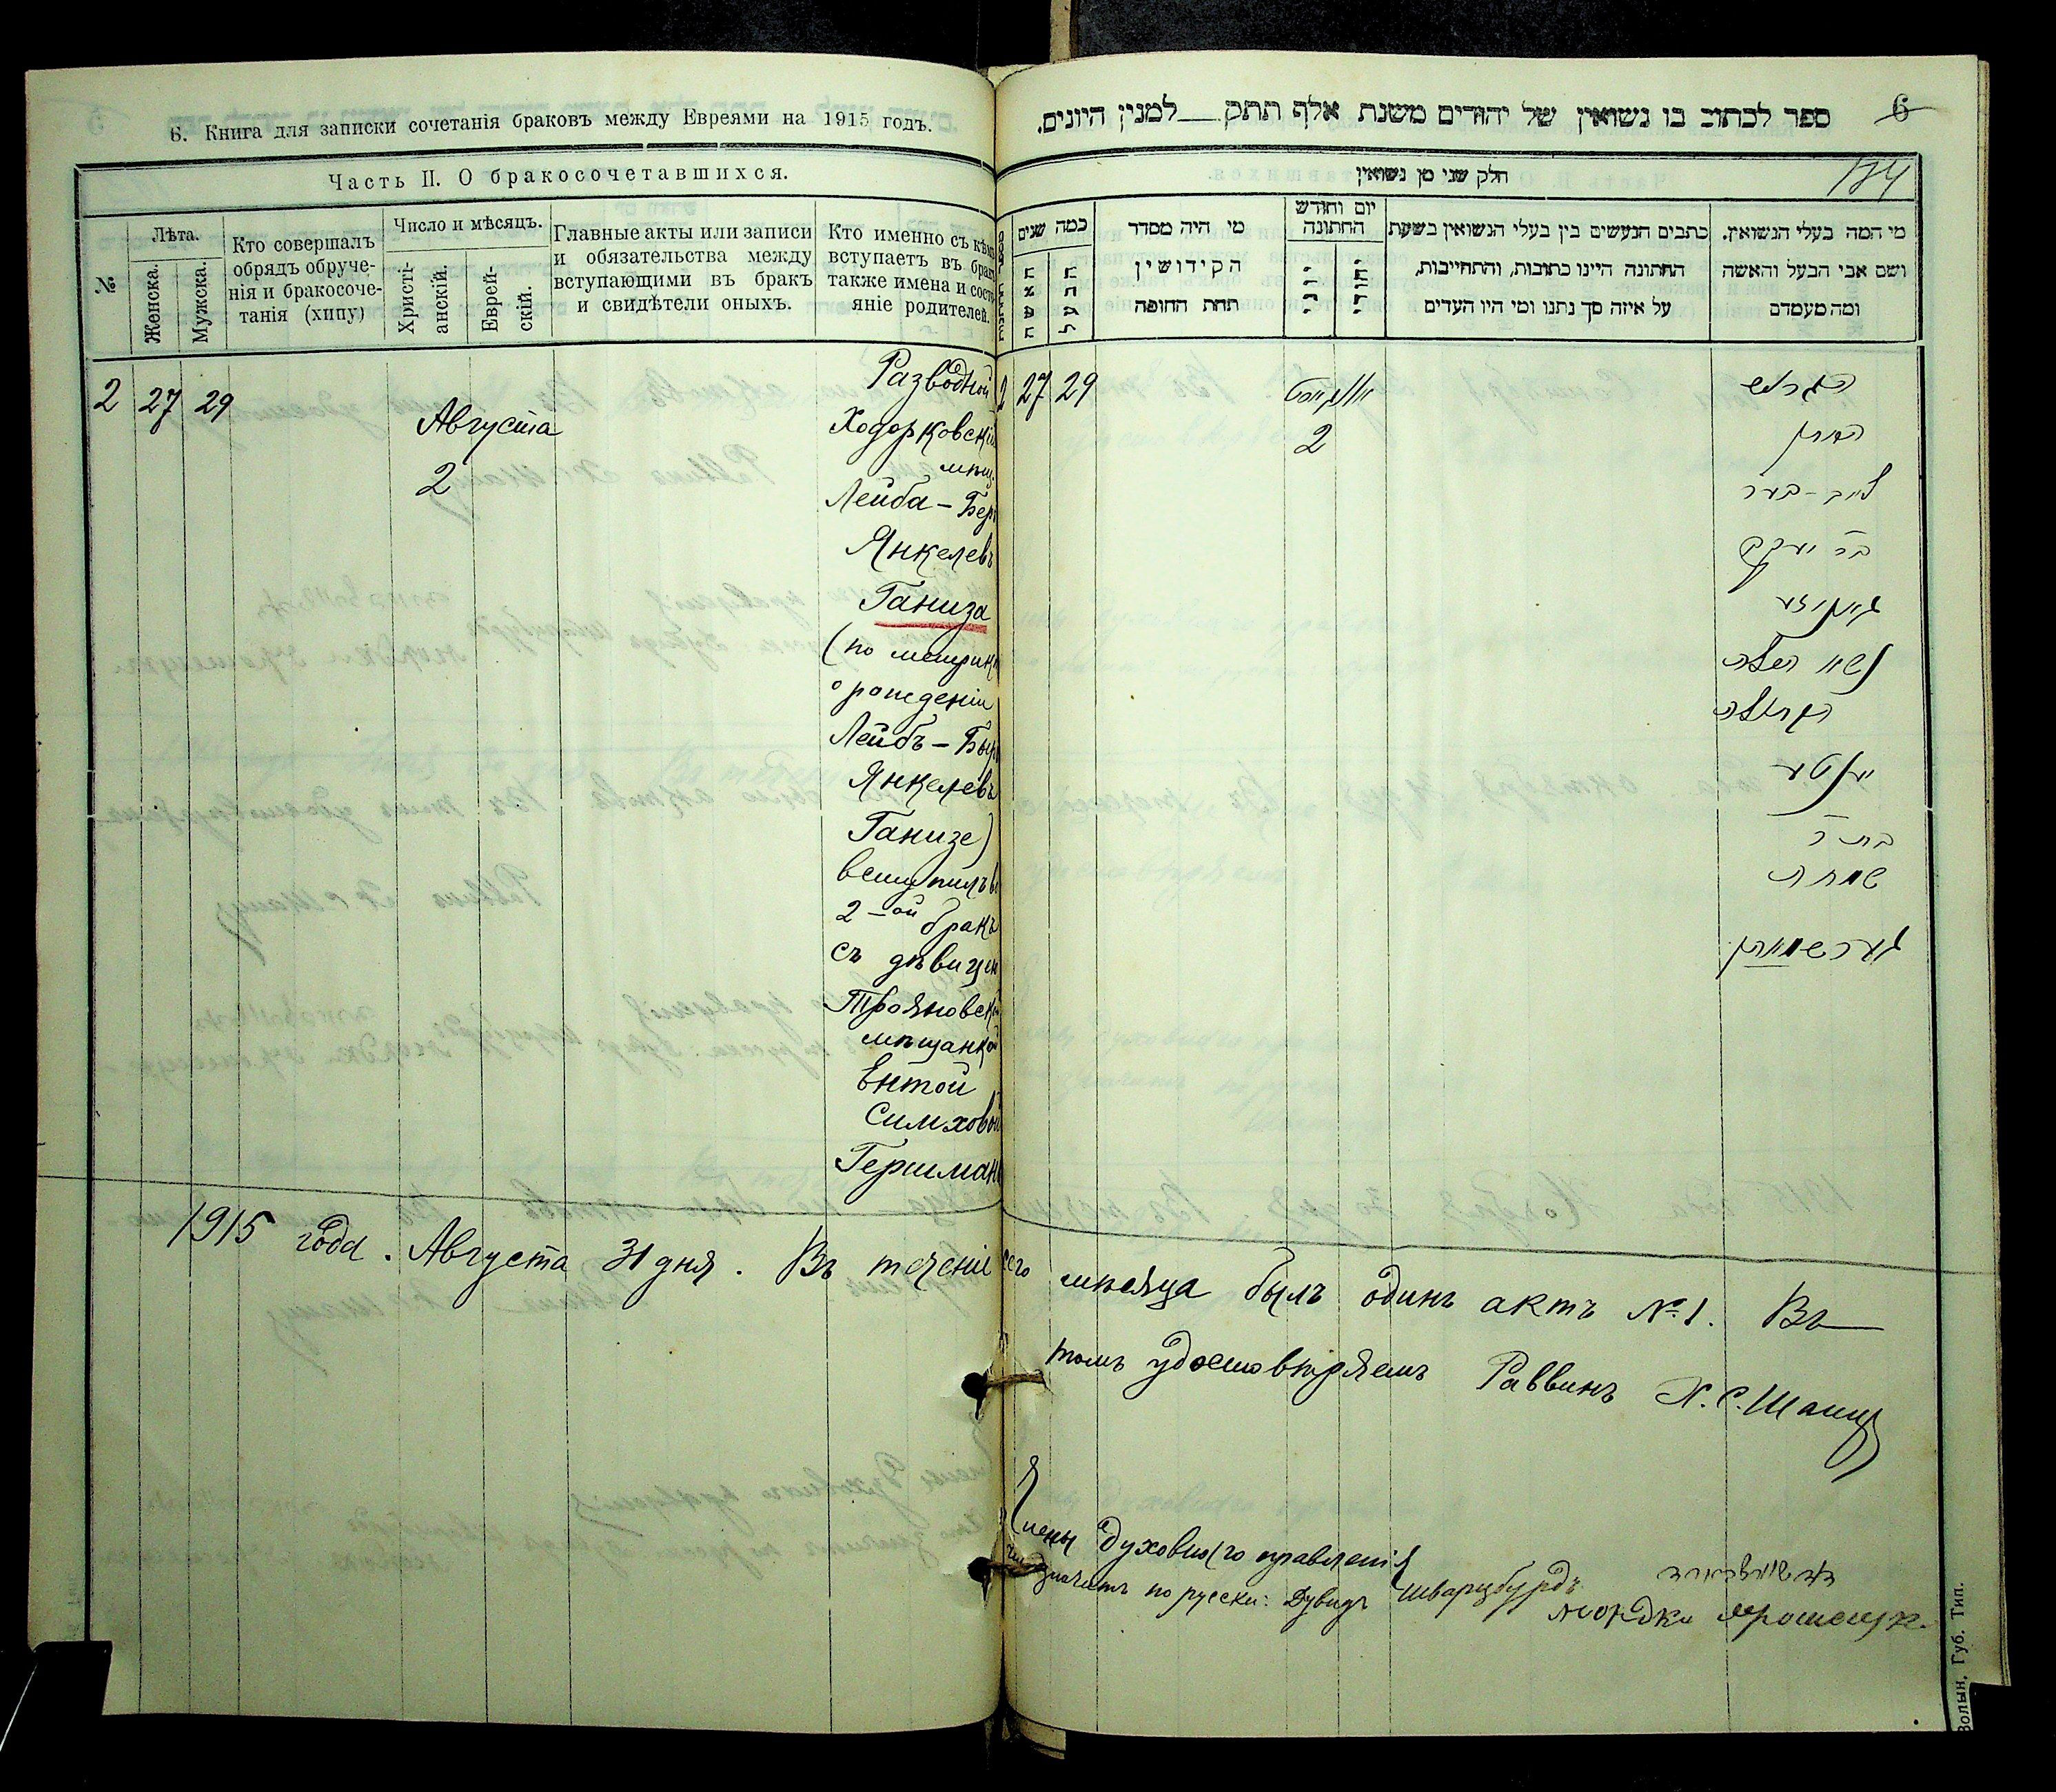 6. Книга для записки сочетанія браковъ между Евреями на 1915 годъ.
Часть II. О бракосочетавшихся.
№
Лѣта.
Женска.
Мужска.
Кто совершалъ
обрядъ обруче-
нія и бракосоче-
танія (хипу)
Число и мѣсяцъ.
Христі-
анскій.
Еврей-
скій.
Главные акты или записи
и обязательства между
вступающими въ бракъ
и свидѣтели оныхъ.
Кто именно съ кѣмъ
вступаетъ въ бракъ
также имена и состо-
яніе родителей.
2 27 29
Августа
2
Разводной
Ходорковскій
мѣщ.
Лейба-Бер
Янкелевъ
Ганиза
(по метрикѣ
о рожденіи
Лейбъ-Бер
Янкелевъ
Ганизе)
вступилъ во
2-ой бракъ
съ дѣвицей
Трояновской
мѣщанкой
Ентой
Симховой
Гершманъ
ספר לכתוב בו נשואין של יהודים משנת אלף תתק למנין היונים.
6
174
חלק שני מן נשואין
כמה שנים
האשה
הבעל
מי היה מסדר
הקידושין
תחת החופה
יום וחודש
החתונה
כתבים הנעשים בין בעלי הנשואין בשעת
החתונה היינו כתובות, והתחייבות,
על איזה סך נתנו ומי היו העדים
מי המה בעלי הנשואין.
ושם אבי הבעל והאשה
ומה מעמדם
2 27 29
אויגוסט
2
הגרוש
לייב-בער
בר יעקב
גאניזע
נשא השלה
הבתולה
יענטע
בת ר
שמחה
גערשמאן
1915 года. Августа 31 дня. Въ теченіе сего мѣсяца былъ одинъ актъ №1. Въ
томъ удостовѣряемъ Раввинъ Х. С. Шапиръ
Члены духовнаго правленія
значитъ по русски: Дувидъ Шварцбурдъ
דוד שווארצבורד
Мордко Ярошенук.
Волын. Губ. Тип.